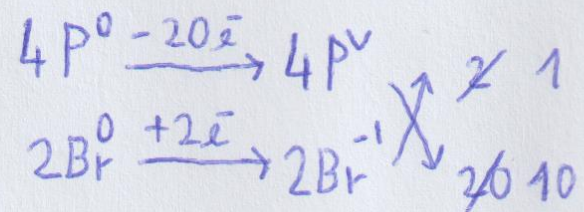 4P⁰ −20ē → 4Pⱽ 2 1
2Br⁰ +2ē → 2Br⁻¹ 20 10